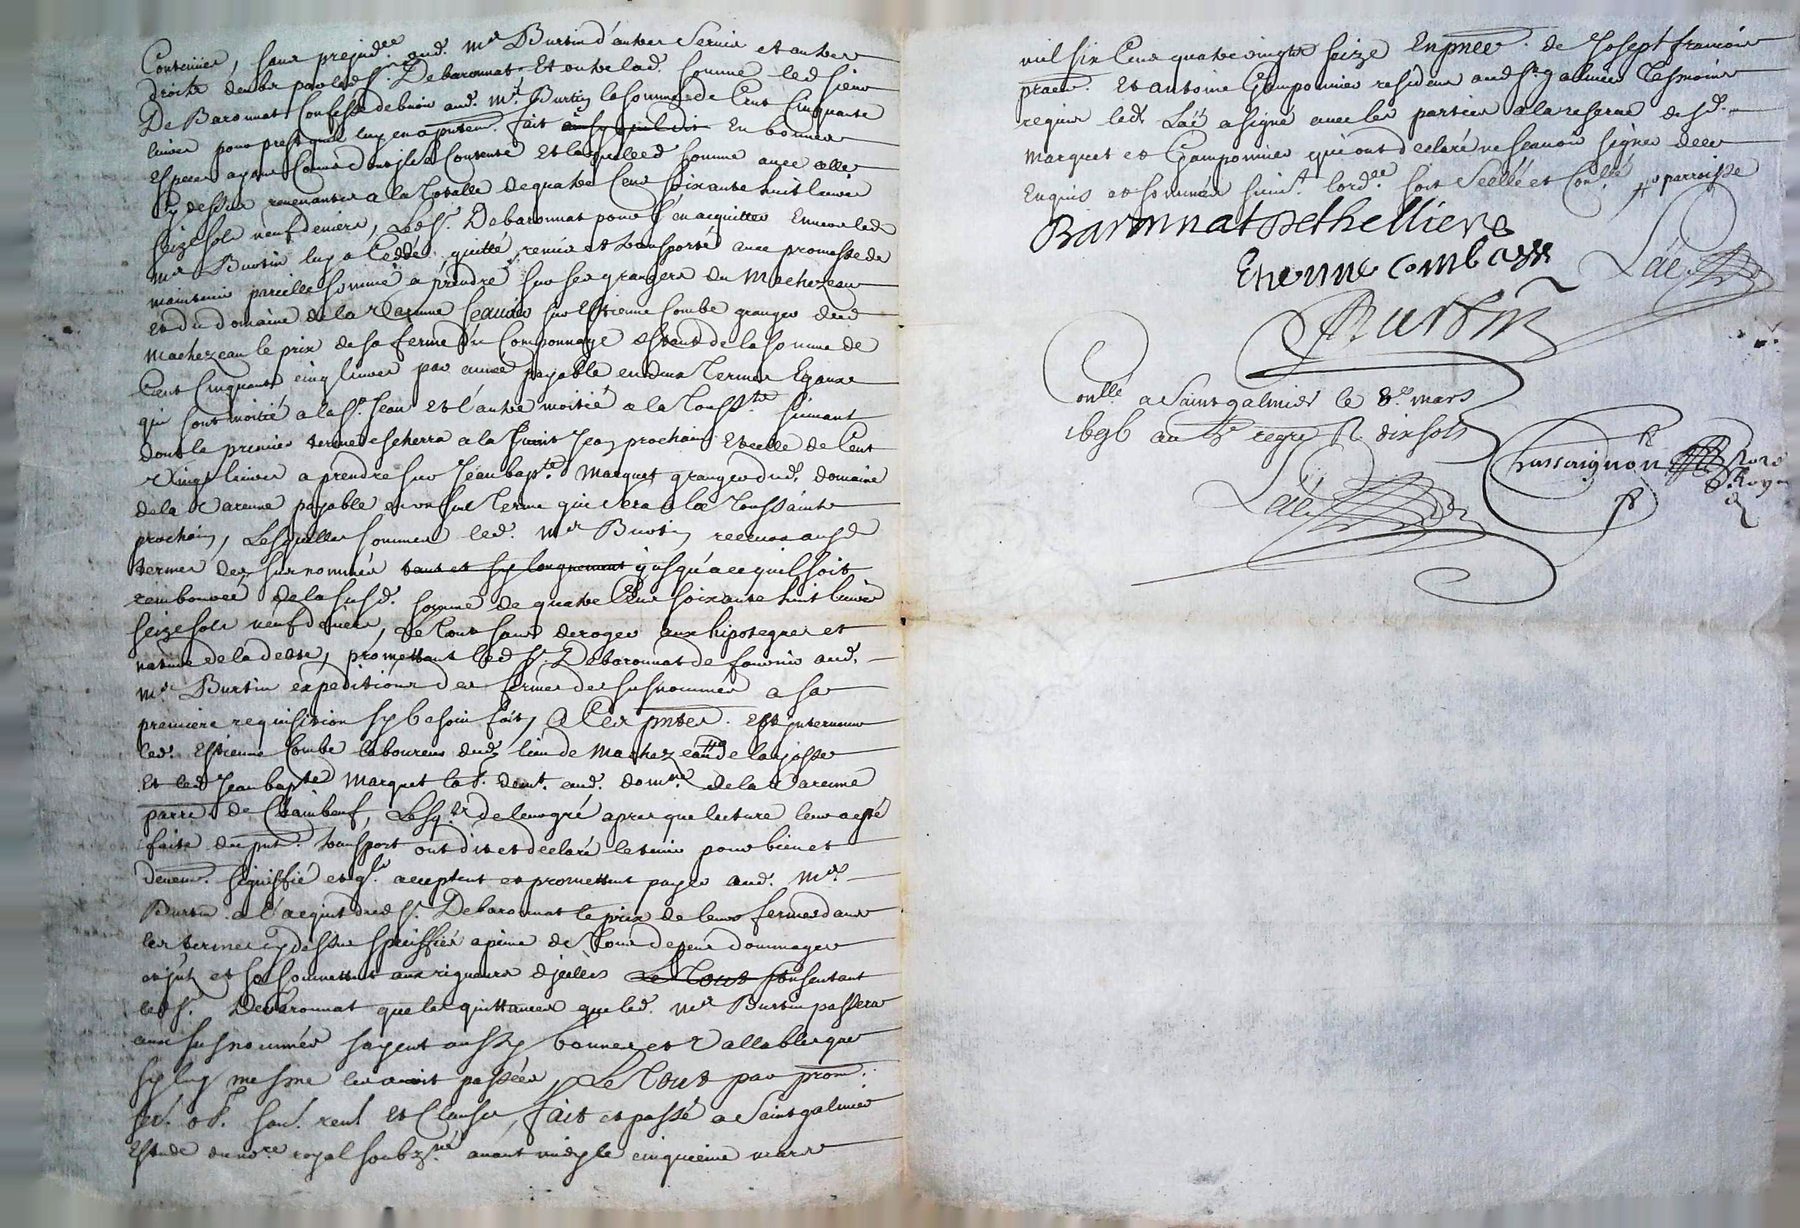 Contenües, sans prejudce aud. Mre Burtin d'autres services et autres
droits deubs par led. Sr. Debaronnat Et outre lad. somme led. sieur
De Baronnat Confesse debvoir aud. Mre. Burtin la somme de Cent Cinquante
livres pour prest quil luy en a prntem. fait en bonnes
Especes ayans Cours dont il s'est Contenté Et laquelled. somme avec celle
cy dessus revenantes a la Totalle de quatre Cens soixante huit livres
seize sols neuf deniers, Led Sr. Debaronnat pour s'en acquitter Envers led.
Mre Burtin luy a Ceddé, quitté, remis et transporté avec promesse de
maintenir pareille somme a prendre sur ses grangers du Machezeau
et du domaine de la Varenne scavoir sur Estienne Combe granger dud.
Machezeau le prix de sa ferme du Componnage estant de la somme de
Cent Cinquante cinq livres par année payable en deux Termes Egaux
qui sont moitié a la St. Jean Et l'autre moitié a la Touss.te suivant
dont le premier terme escherra a la Saint Jean prochain Et celle de Cent
Vingt livres a prendre sur Jean bapte. Marquet granger dud. domaine
de la Varenne payable en un seul Terme qui sera a la Toussaints
prochain, Lesquelles sommes led. Mre Burtin recevra ausd.
termes des surnommés tant et sy longuement jusqu'a ce quil soit
rembourcé de la susd. somme de quatre Cens soixante huit livres
seize sols neuf deniers, Le Tout sans deroger aux hipoteques et
nature de la dette, promettant led Sr. Debaronnat de fournir aud.
Mre Burtin expeditions des fermes des susnommés a sa
premiere requisition sy besoin fait, A Ces pntes. Est jntervenu
led. Estienne Combe laboureur dud. lieu de Machezeau
Et led Jean bapte Marquet lab. demt. aud. domne. de la Varenne
parre. de Chambeuf, Lesq.ls de leur gré apres que lecture leur a esté
faite du pnt. transport ont dit et declaré le tenir pour bien et
deuem. signiffié et accepteut et promettent payer aud. Mre
Burtin a l'acquit dud Sr. Debaronnat le prix de leurs fermes dans
les termes cy dessus speciffiés a peine de Tous despens dommages
et jnts et se soumettent aux rigueurs d'jcelles Le Tout Consentant
led Sr. Debaronnat que les quittances que led. Mre Burtin passera
aux susnommés soyent aussy bonnes et Vallables que
sy luy mesme les avoit passées, Le Tout par prom.
ser. ob. soum. ren. Et Clauses, fait et passé a Saint galmier
Estude du nore. royal soubzné avant midy le cinquieme mars
mil six Cens quatre vingts seize En pnce. de Joseph francois
pratn. Et antoine Gamponnier residens aud St. galmier Tesmoins
requis led. Läé a signé avec les parties a la reserve desd.
Marquet et Gamponnier qui ont declaré ne scavoir signer de ce
Enquis et sommés suivt. lord.ce soit Scellé et Conllé parroisse
Baronnat Dethellieres
Etienne Combass
Läé
Burtin
Conlle. a Saint galmier le 8.e mars
1696 au regre R. dix sols
Chasseignon
Läé